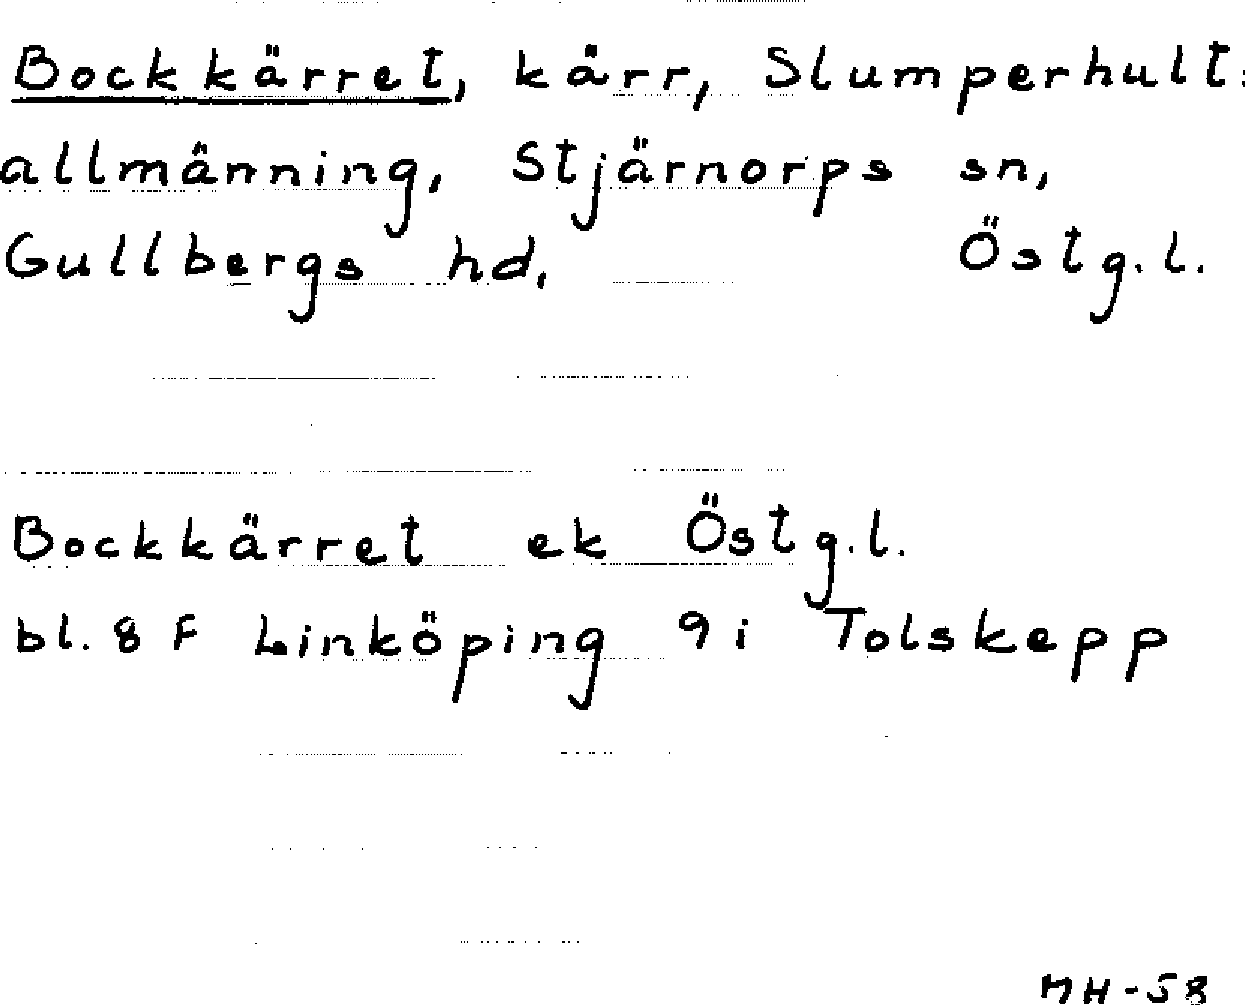 Bockkärret, kärr, Slumperhults
allmänning, Stjärnorps sn,
Gullbergs hd, Östg.l.
Bockkärret ek Östg.l.
bl. 8 F Linköping 9 i Tolskepp
MH-58